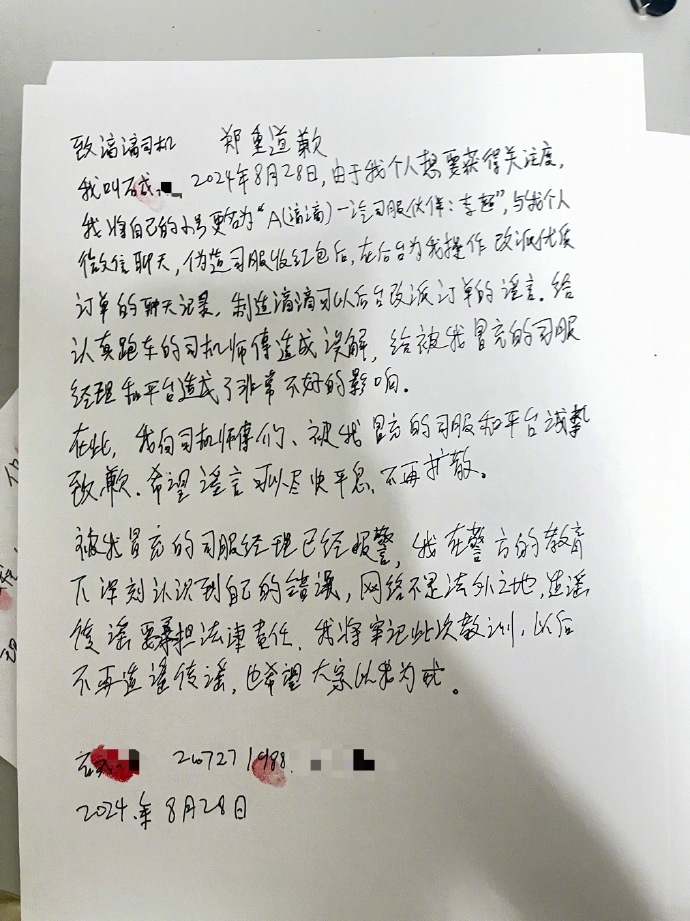 致滴滴司机 郑重道歉
我叫石成 2024年8月28日,由于我个人想要获得关注度,
我将自己的小号更名为“A(滴滴)一汽司服伙伴:李超”,与我个人
微信聊天,伪造司服收红包后,在后台为我操作改派优质
订单的聊天记录,制造滴滴可以后台改派订单的谣言.给
认真跑车的司机师傅造成误解,给被我冒充的司服
经理和平台造成了非常不好的影响.
在此,我向司机师傅们、被我冒充的司服和平台诚挚
致歉.希望谣言可以尽快平息、不再扩散。
被我冒充的司服经理已经报警,我在警方的教育
下深刻认识到自己的错误,网络不是法外之地,造谣
传谣要承担法律责任.我将牢记此次教训,以后
不再造谣传谣,也希望大家以我为戒。
1988
2024.年8月28日